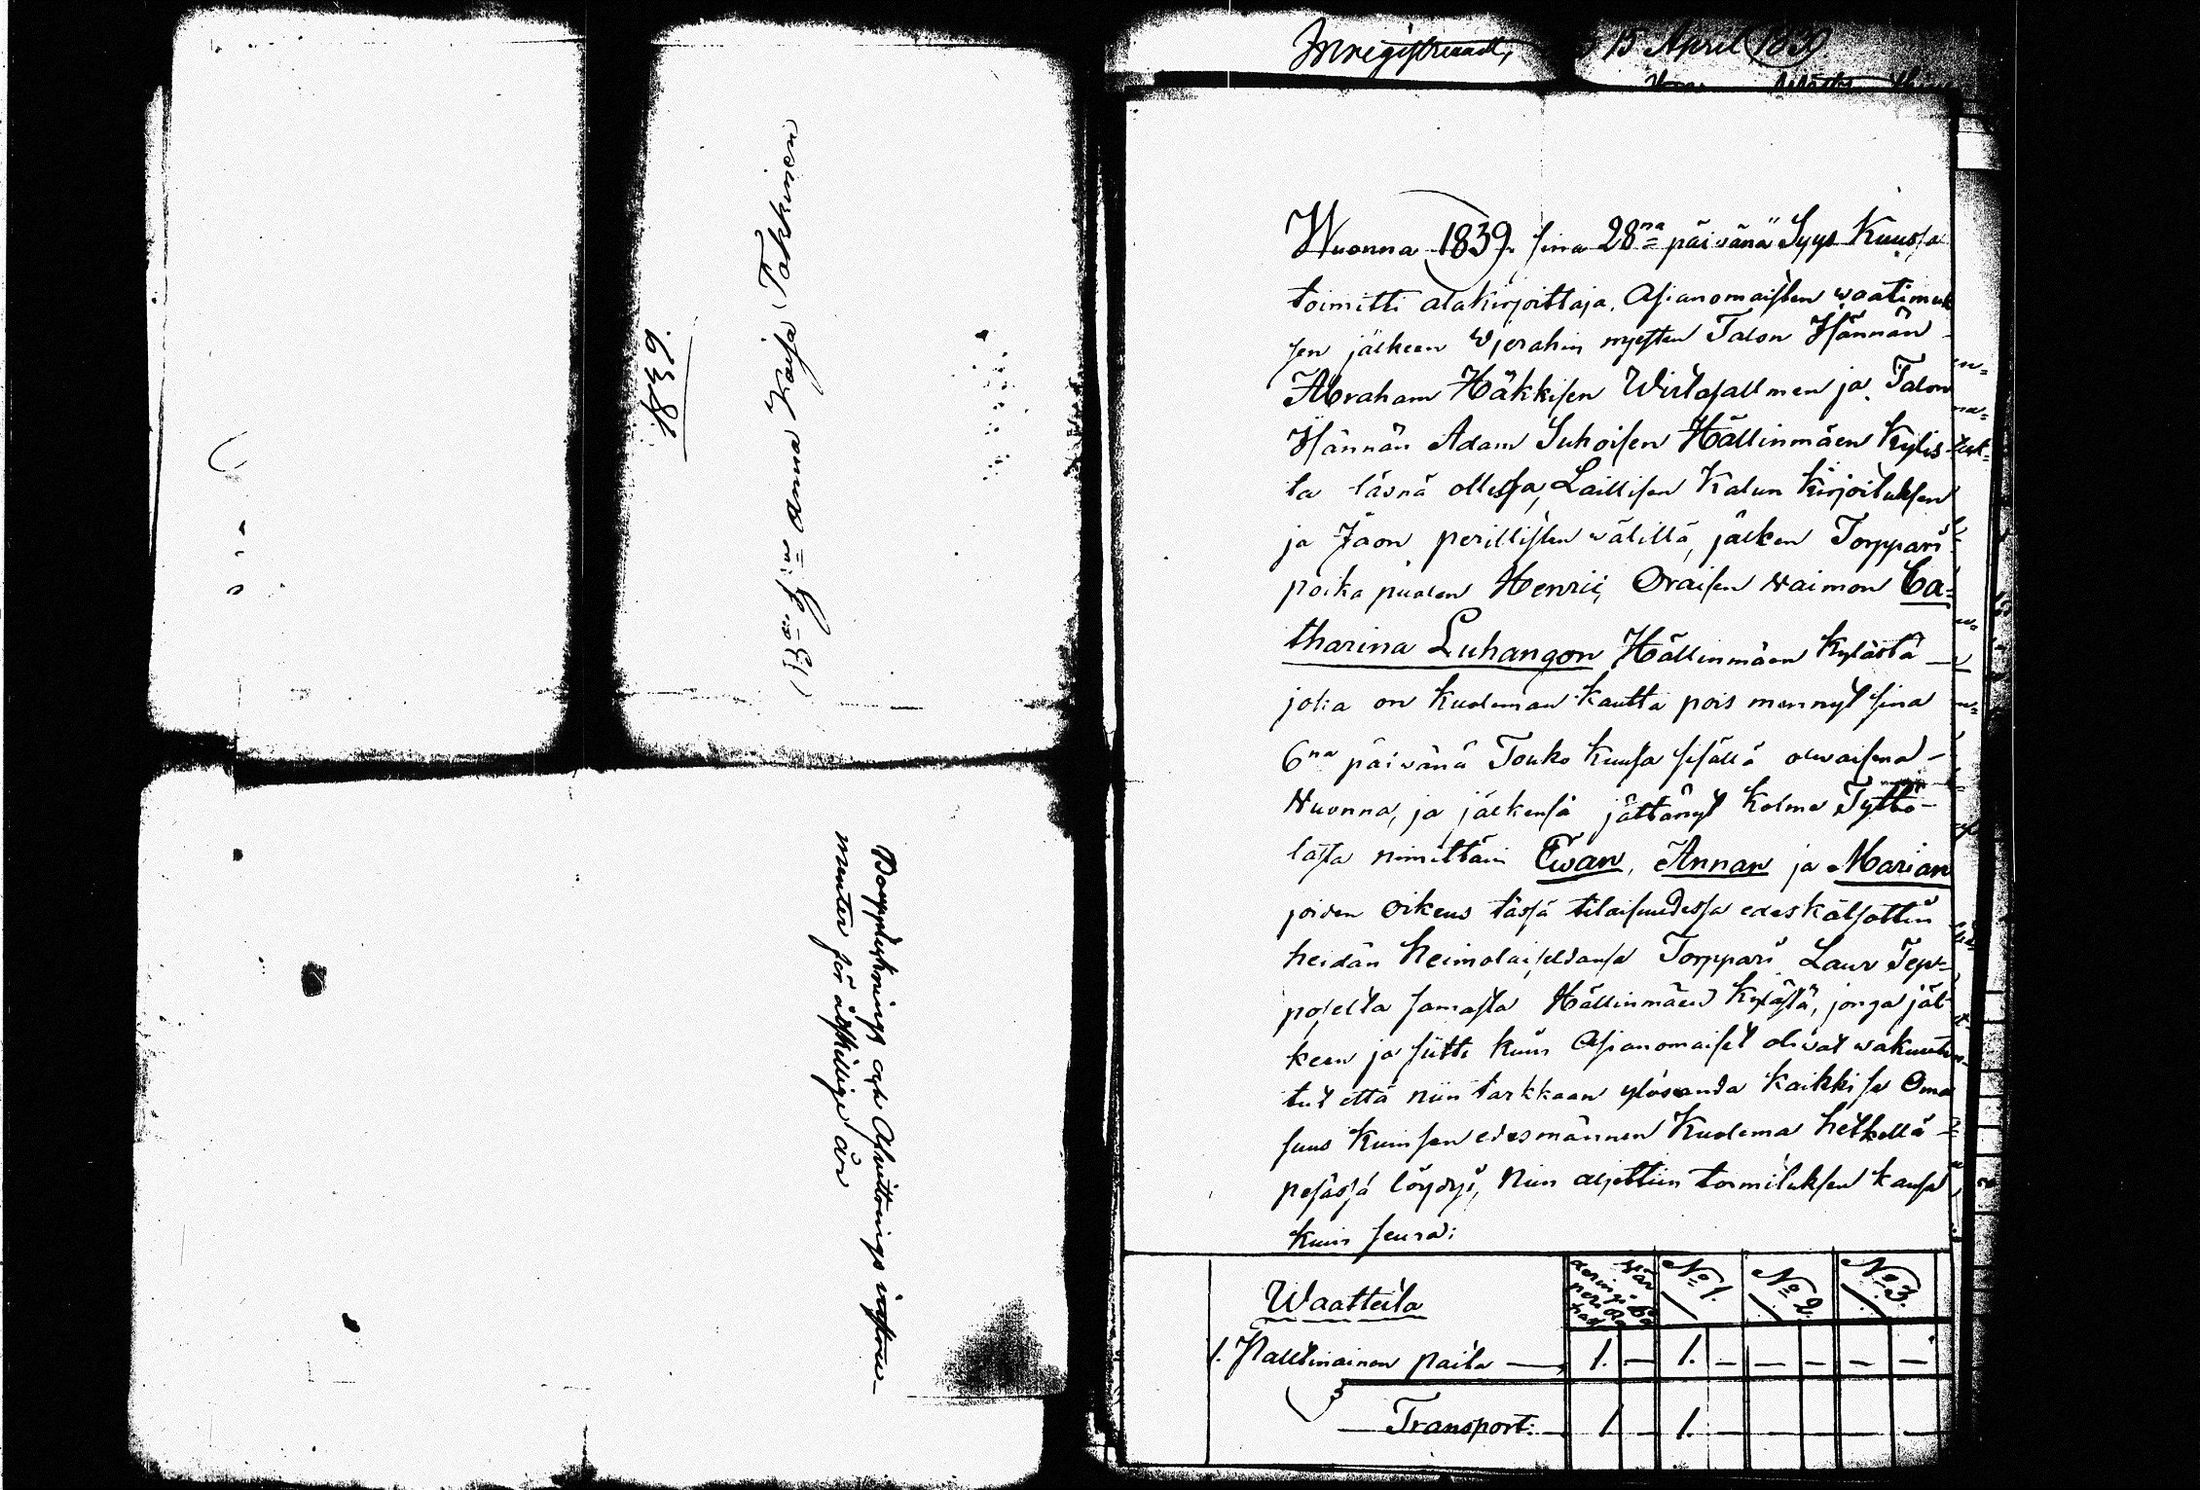 1839.
Bd för Anna Kaisa Takkinen
Bouppteknings och Afvittrings instru-
menter för åtskillige år
Inregistreradt, 15 April 1839
Wuonna 1839. sina 28na päivänä Syys Kuussa
toimitti alakirjoittaja, Asianomaisten waatimuk
sen jälkeen Wierahin myesten Talon Isännän
Abraham Häkkisen Wirtasalmen ja Talon
Isännän Adam Suhoisen Hällinmäen Kylis-
tä läsnä ollessa, Laillisen Kalun Kirjoituksen
ja Jaon perillisten wälillä, jälken Torppari
poika puolen Henric Oraisen Waimon Ca-
tharina Luhangon Hällinmäen Kylästä
joka on Kuoleman kautta pois mennyt sina
6na päivänä Touko Kuusa sisällä olevaisena
Wuonna, ja jälkensä jättänyt Kolme Tyttö
lasta nimittäin Ewan, Annan ja Marian
joiden oikeus tässä tilaisuudessa edeskatsottin
heidän heimolaiseldansa Torppari Laur Tep-
poselta samasta Hällinmäen Kylästä, jonga jäl-
keen ja sitte kuin Asianomaiset olivat wakuute
tut että niin tarkkaan ylösanda kaikki se Oma
suus kuin sen edesmännen Kuolema hetkellä
pesässä löydyi, Niin aljettiin toimituksen kansa
kuin seura:
Waatteita No 1. No 2. No 3.
1. Palttinainen paita 1. — 1. — — — — —
Transport: 1 — 1. — — — — —